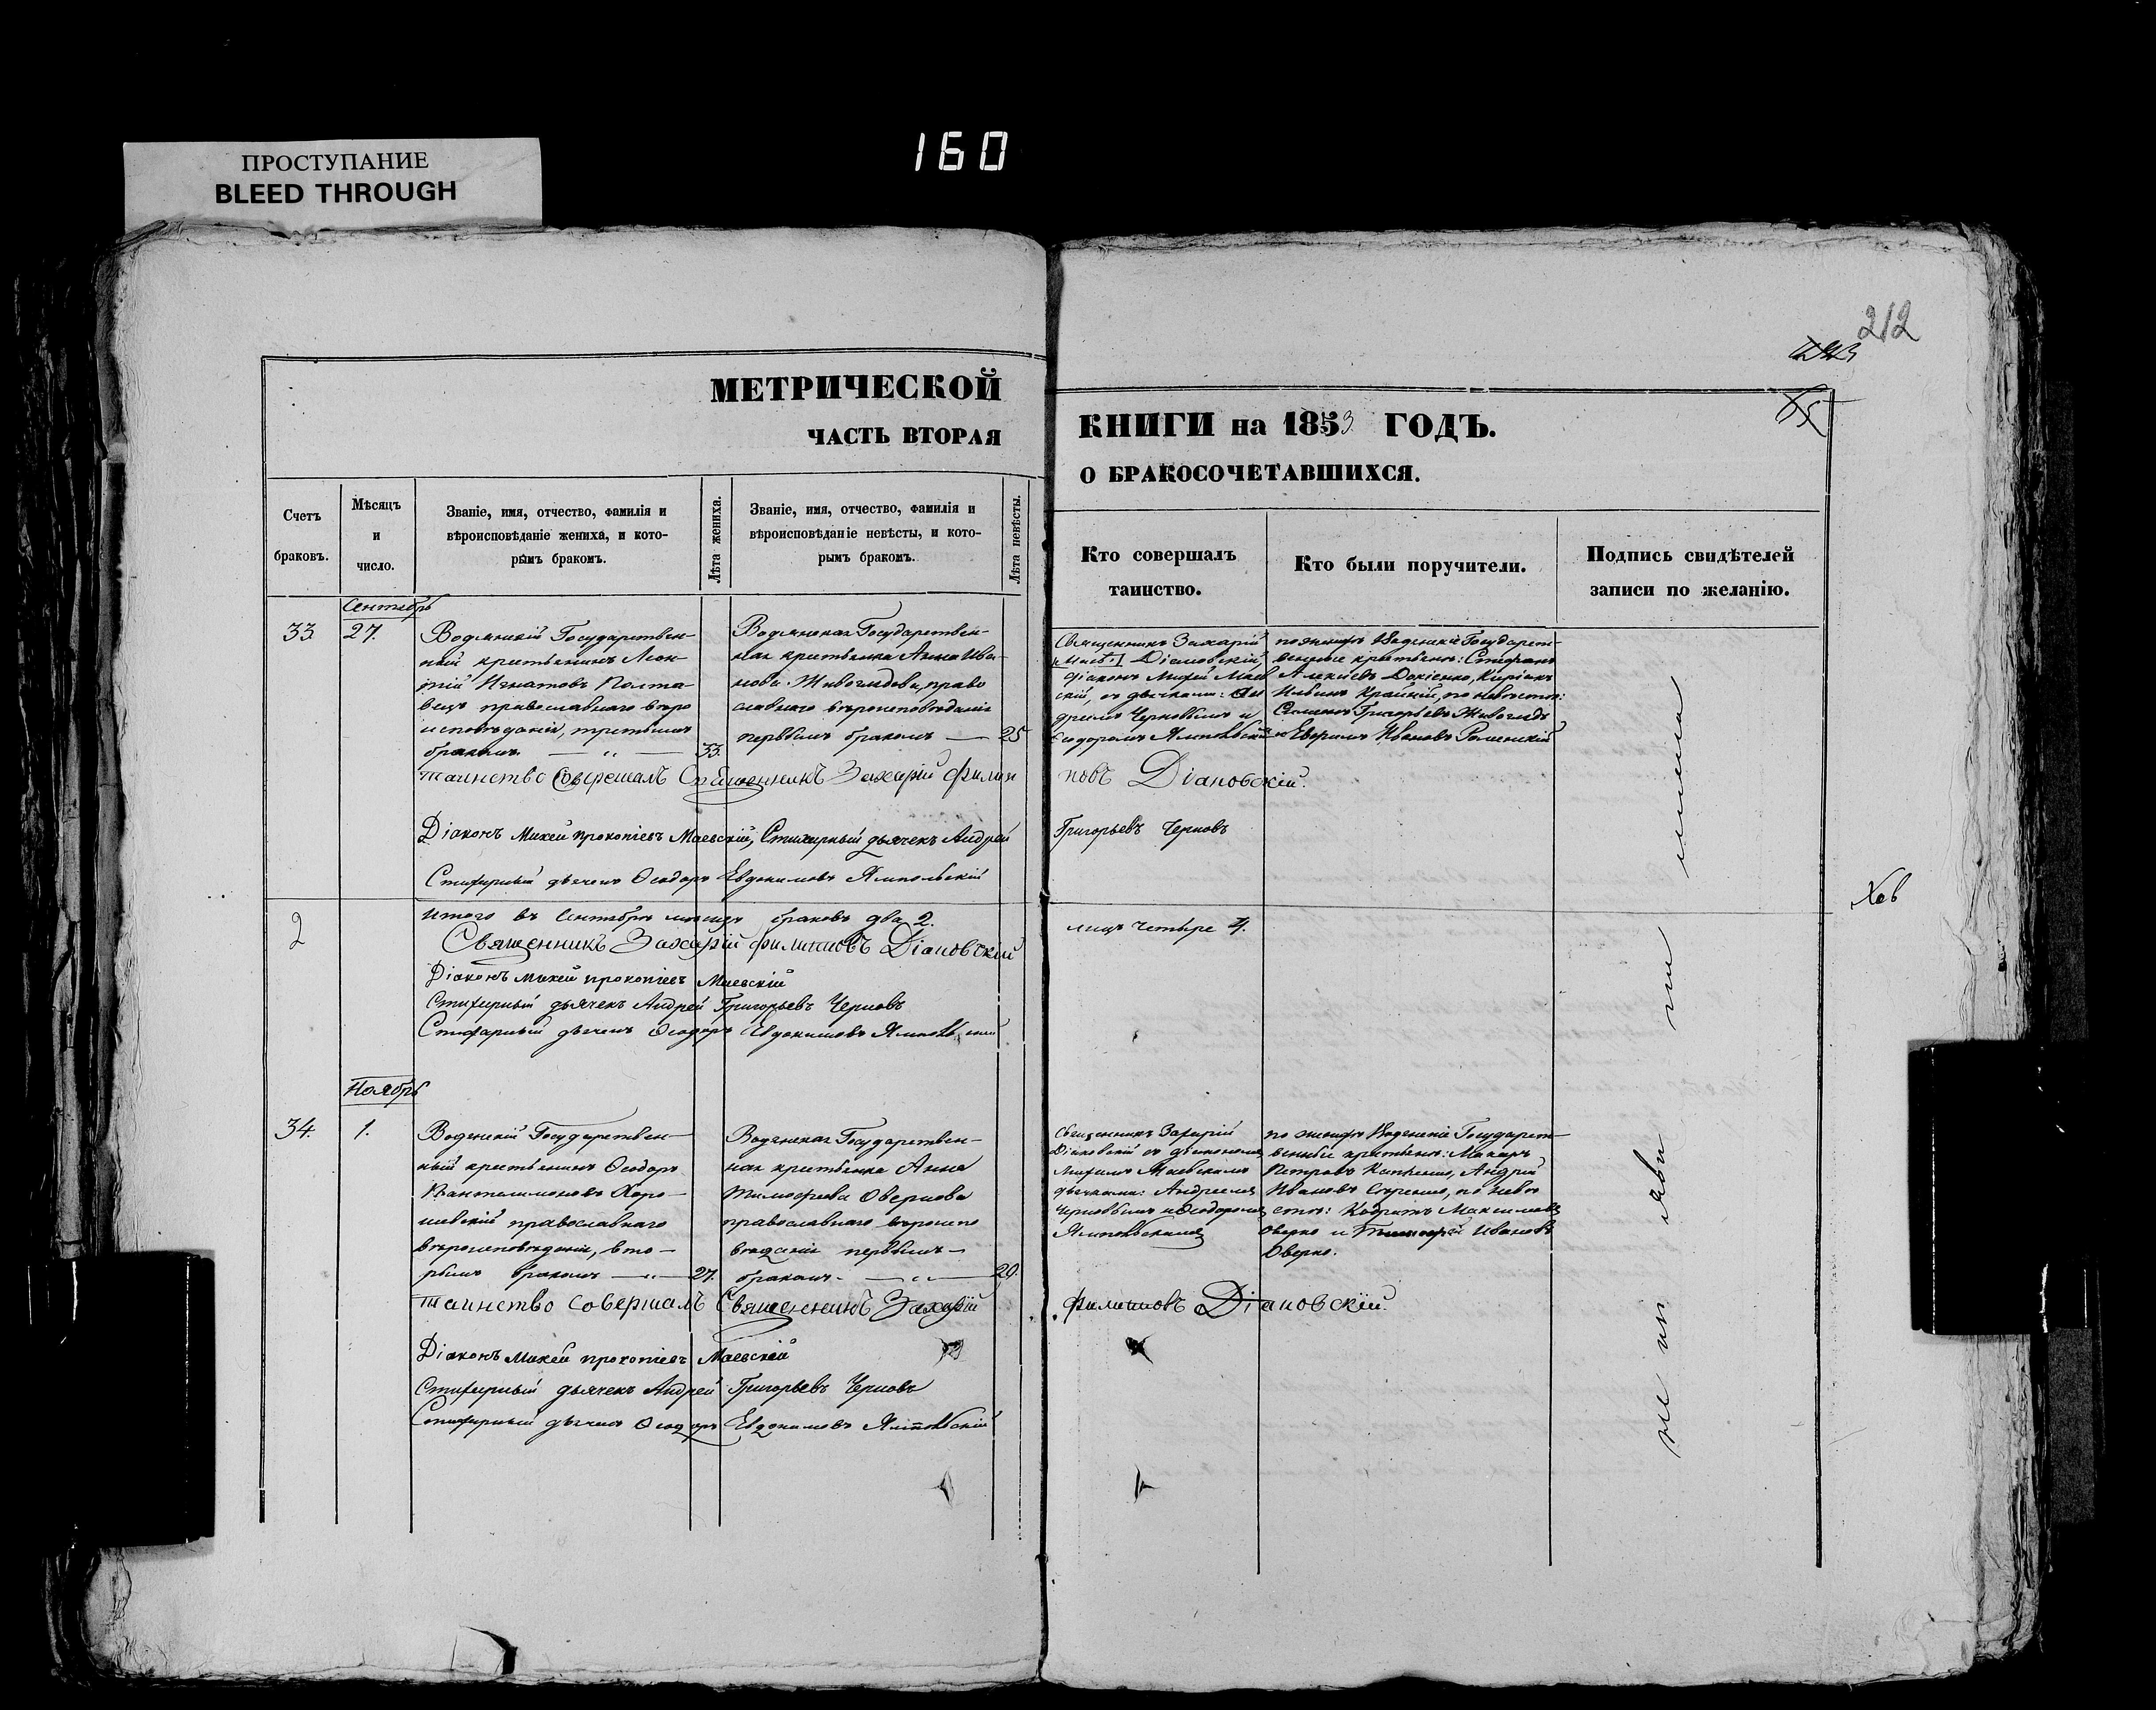 ПРОСТУПАНИЕ
BLEED THROUGH
160
212
МЕТРИЧЕСКОЙ
ЧАСТЬ ВТОРАЯ
КНИГИ на 1853 ГОДЪ.
О БРАКОСОЧЕТАВШИХСЯ.
Счетъ браковъ.
Мѣсяцъ и число.
Званіе, имя, отчество, фамилія и
вѣроисповѣданіе жениха, и кото-
рымъ бракомъ.
Лѣта жениха.
Званіе, имя, отчество, фамилія и
вѣроисповѣданіе невѣсты, и кото-
рымъ бракомъ.
Лѣта невѣсты.
Кто совершалъ
таинство.
Кто были поручители.
Подпись свидѣтелей
записи по желанію.
Сентябрь
33
27.
Водянскій Государствен-
ный крестьянинъ Леон-
тій Игнатовъ Полта-
вецъ православнаго вѣро
исповѣданія, третьимъ
бракомъ
33.
Водянская Государствен-
ная крестьянка Анна Ива-
нова Живоглядова, право
славнаго вѣроисповѣданія
первымъ бракомъ
25
Священникъ Захарій
Діановскій,
діаконъ Михей Маев
скій, съ дьячками: Ан
дреемъ Черновымъ и
Ѳеодоромъ Ямпольскимъ
по женихѣ Водянскіе Государст-
венные крестьяне: Стефанъ
Алексѣевъ Кирiакъ
Ильинъ по невѣстѣ:
Григорьевъ Живоглядъ
и Иванъ Роменскій
таинство Совершалъ Священникъ Захарій Филип
повъ Діановскій.
Діаконъ Михей прокопіевъ Маевскій, Стихарный дьячекъ Андрей
Григорьевъ Черновъ
Стихарный дьячекъ Ѳеодоръ Евдокимовъ Ямпольскій
2
Итого въ Сентябрѣ мѣсяцѣ браковъ два 2.
лицъ четыре 4.
Священникъ Захарій филиповъ Діановскій
Діаконъ Михей прокопіевъ Маевскій
Стихарный дьячекъ Андрей Григорьевъ Черновъ
Стихарный дьячекъ Ѳеодоръ Евдокимовъ Ямпольскій
Ноябрь
34.
1.
Водянскій Государствен-
ный крестьянинъ Ѳеодоръ
Пантелимоновъ Хоро-
шевскій православнаго
вѣроисповѣданія, вто-
рымъ бракомъ
27.
Водянская Государствен-
ная крестьянка Анна
Тимофеева Оверкова
православнаго вѣроиспо
вѣданія первымъ
бракомъ
20.
Священникъ Захарій
Діановскій съ діакономъ
Михеемъ Маевскимъ
дьячками: Андреемъ
Черновымъ и Ѳеодоромъ
Ямпольскимъ
по женихѣ Водянскіе Государст-
венные крестьяне: Макаръ
Петровъ Андрей
Ивановъ по невѣ
стѣ: Кодратъ Максимовъ
Оверко и Ивановъ
Оверко.
таинство совершалъ Священникъ Захарій
филиповъ Діановскій.
Діаконъ Михей прокопіевъ Маевскій
Стихарный дьячекъ Андрей Григорьевъ Черновъ
Стихарный дьячекъ Ѳеодоръ Евдокимовъ Ямпольскій